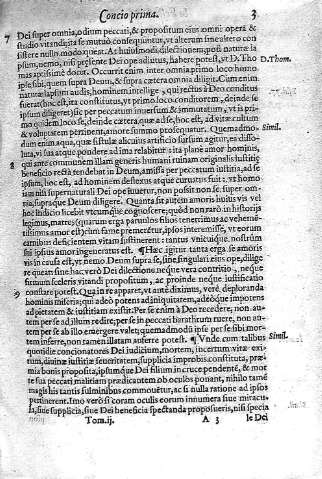 Concio prima. 3
7 Dei super omnia, odium peccati, & propositum eius omni opera &
studio vitandi, ita se mutuò consequuntur, vt alterum sine altero con
sistere nullo modo queat. At huiusmodi dilectionem, quòd naturæ la
psum, nemo, nisi præsente Dei ope adiutus, habere potest, vt D. Tho D. Thom.
mas aptissimè docet. Occurrit enim inter omnia primo loco homo
ipse sibi, quem supra Deum, & supra cætera omnia diligit. Cùm enim
naturæ lapsum audis, hominem intellige, qui rectus à Deo conditus
fuerat, hoc est, ita constitutus, vt primo loco conditorem, deinde se
ipsum diligeret, sic per peccatum inuersum, & immutatum, vt is pri
mo quidem loco se, deinde cætera quæ ad se, hoc est, ad vitæ cultum
& voluptatem pertinent, amore summo prosequatur. Quemadmo Simil.
dum enim aqua, quæ fistulæ alicuius artificio sursum agitur, ea disso-
luta, vi sua atque pondere ad ima relabitur: ita planè amor hominis,
8 qui ante communem illam generis humani ruinam originalis iustitiæ
beneficio recta tendebat in Deum, amissa per peccatum iustitia, ad se
ipsum, hoc est, ad hominem deflexus atque curuatus fuit: vt homo
iam nisi supernaturali Dei ope iuuetur, non possit non se super om-
nia, supraque Deum diligere. Quanta sit autem amoris huius vis vel
hoc iudicio licebit vtcumque cognoscere; quòd non rarò in historijs
legimus, matres (quarum erga paruulos filios tenerrimus ac vehemē
tissimus amor est) cùm fame premerētur, ipsos interemisse, vt eorum
carnibus deficientem vitam sustinerent: tantus vnicuique, nostrum
sui ipsius amor ingeneratus est. ¶ Hæc igitur tanta erga se amoris
vis in causa est, vt nemo Deum supra se, sine singulari eius ope, dilige
re queat: sine hac verò Dei dilectione, neque vera contritio, neque
futuri sceleris vitandi propositum, ac proinde neque iustificatio
9 constare potest. Qua in re apparet, vt ante diximus, verè deploranda
hominis miseria; qui adeò potens ad iniquitatem, adeòque impotens
ad pietatem & iustitiam exstitit. Per se enim à Deo recedere, non au-
tem per se ad illum redire, per se in peccati barathrum ruere, non au-
tem per se ab illo emergere valet; quemadmodū ipse per se sibi mor-
tem inferre, non tamen illatam auferre potest. ¶ Vnde cum talibus Simil.
quotidie concionatores Dei iudicium, mortem, incertum vitæ exi-
tum, diuinæ iustitiæ seueritatem, supplicia improbis constituta, præ-
mia bonis proposita, ipsumque Dei filium in cruce pendentē, & mor
te sua peccati malitiam prædicantem ob oculos ponant, nihilo tamē
magis his tantis fulminibus commouētur, ac si nulla ratione ad ipsos
pertinerent. Imo verò si coram oculis eorum innumera siue miracu-
la, siue supplicia, siue Dei beneficia spectanda proposueris, nisi specia
Tom. ij. A 3 le Dei